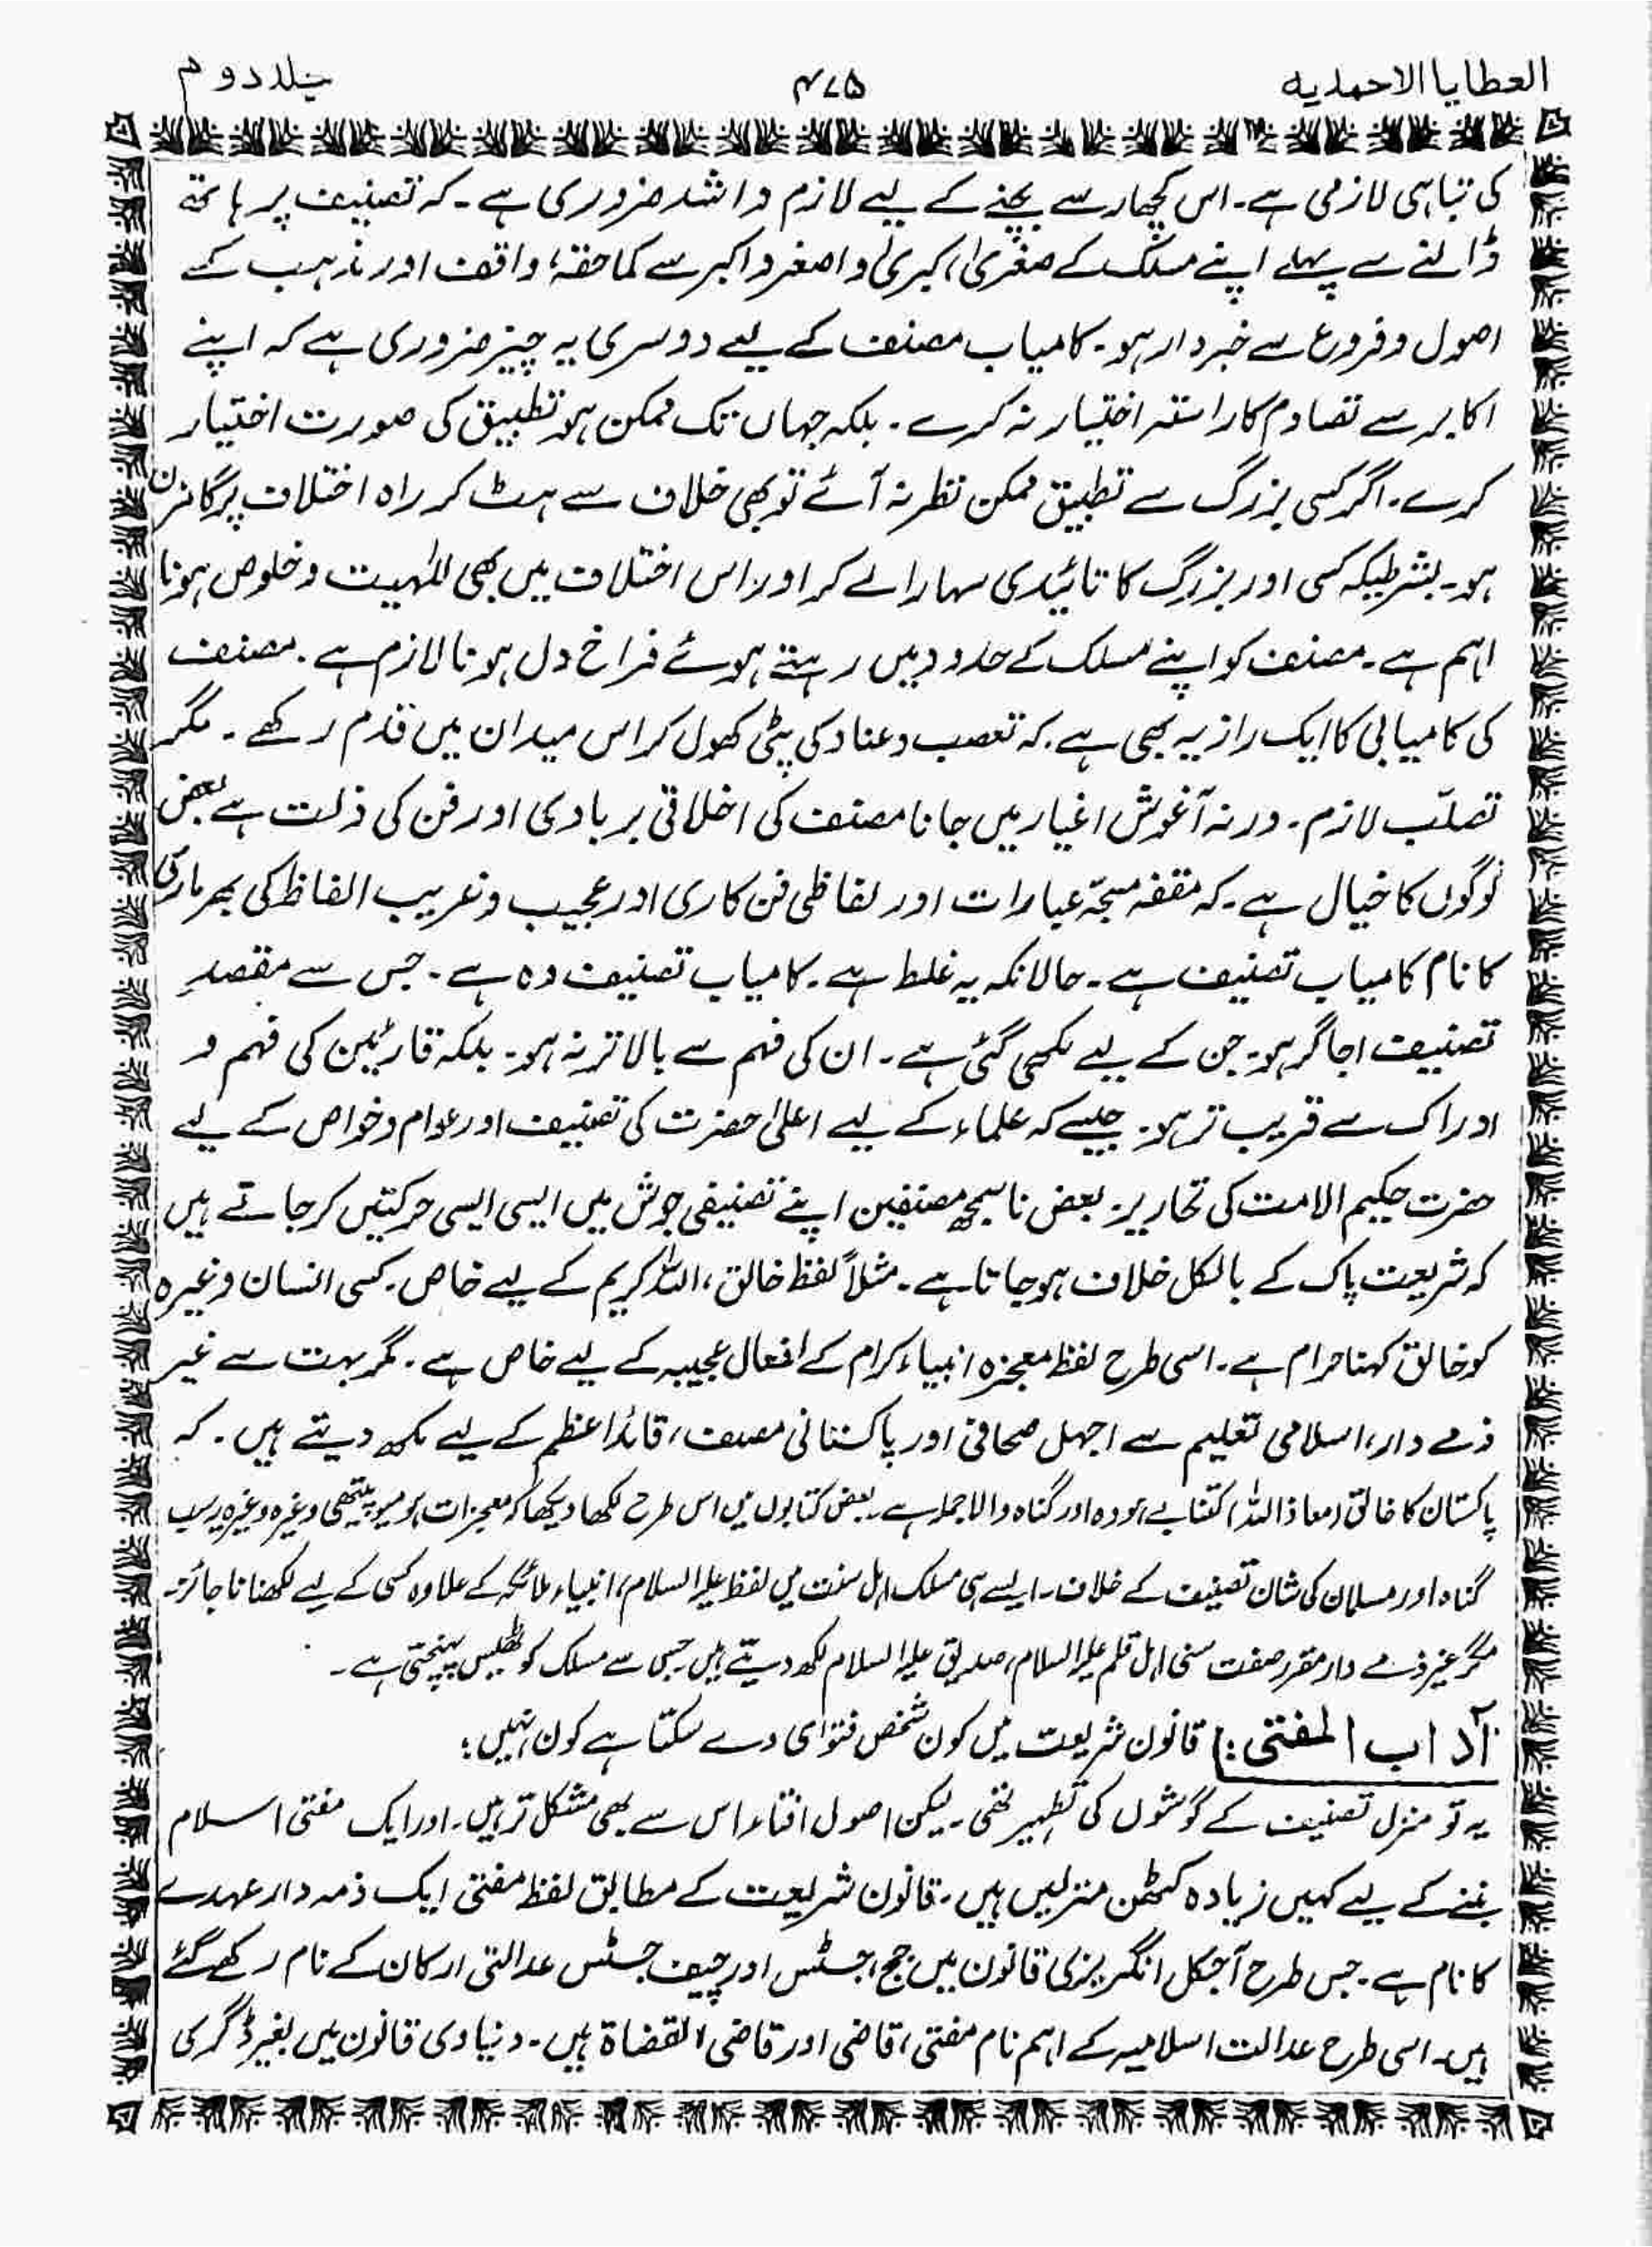 العطایا الاحمدیہ
۴۷۵
جلد دوم
کی تباہی لازمی ہے۔ اس کچھار سے بچنے کے لیے لازم و اشد ضروری ہے۔ کہ تصنیف پر ہاتھ
ڈالنے سے پہلے اپنے مسلک کے صغریٰ، کبریٰ و اصغر و اکبر سے کما حقہٗ، واقف اور مذہب کے
اصول و فروع سے خبردار ہو۔ کامیاب مصنف کے لیے دوسری یہ چیز ضروری ہے کہ اپنے
اکابر سے تصادم کا راستہ اختیار نہ کرے۔ بلکہ جہاں تک ممکن ہو تطبیق کی صورت اختیار
کرے۔ اگر کسی بزرگ سے تطبیق ممکن نظر نہ آئے تو بھی خلاف سے ہٹ کر راہ اختلاف پر گامزن
ہو۔ بشرطیکہ کسی اور بزرگ کا تائیدی سہارا لے کر اور اس اختلاف میں بھی للٰہیت و خلوص ہونا
اہم ہے۔ مصنف کو اپنے مسلک کے حدود میں رہتے ہوئے فراخ دل ہونا لازم ہے۔ مصنف
کی کامیابی کا ایک راز یہ بھی ہے۔ کہ تعصب و عناد کی پٹی کھول کر اس میدان میں قدم رکھے۔ مگر
تصلّب لازم۔ ورنہ آغوش اغیار میں جانا مصنف کی اخلاقی بربادی اور فن کی ذلت ہے بعض
لوگوں کا خیال ہے۔ کہ مقفہ مسجّہ عبارات اور لفاظی فن کاری اور عجیب و غریب الفاظ کی بھرمار کی
کا نام کامیاب تصنیف ہے۔ حالانکہ یہ غلط ہے۔ کامیاب تصنیف وہ ہے۔ جس سے مقصدِ
تصنیف اجاگر ہو۔ جن کے لیے لکھی گئی ہے۔ ان کی فہم سے بالاتر نہ ہو۔ بلکہ قارئین کی فہم و
ادراک سے قریب تر ہو۔ جیسے کہ علماء کے لیے اعلیٰ حضرت کی تصنیف اور عوام و خواص کے لیے
حضرت حکیم الامت کی تحاریر۔ بعض ناسمجھ مصنفین اپنے تصنیفی جوش میں ایسی ایسی حرکتیں کر جاتے ہیں
کہ شریعت پاک کے بالکل خلاف ہو جاتا ہے۔ مثلاً لفظ خالق، اللہ کریم کے لیے خاص۔ کسی انسان وغیرہ
کو خالق کہنا حرام ہے۔ اسی طرح لفظ معجزہ انبیاء کرام کے افعال عجیبہ کے لیے خاص ہے۔ مگر بہت سے غیر
ذمے دار، اسلامی تعلیم سے اجہل صحافی اور پاکستانی مصنف، قائد اعظم کے لیے لکھ دیتے ہیں۔ کہ
پاکستان کا خالق (معاذ اللہ) کتنا بے ہودہ اور گناہ والا جملہ ہے۔ بعض کتابوں میں اس طرح لکھا دیکھا کہ معجزات ہومیوپیتھی وغیرہ وغیرہ یہ سب
گناہ اور مسلمان کی شان تصنیف کے خلاف۔ ایسے ہی مسلک اہل سنت میں لفظ علیہ السلام، انبیاء ملائکہ کے علاوہ کسی کے لیے لکھنا ناجائز۔
مگر غیر ذمے دار مقرر صفت سنی اہل قلم علیہ السلام، صدیق علیہ السلام لکھ دیتے ہیں جس سے مسلک کو ٹھیس پہنچتی ہے۔
آداب المفتی:) قانون شریعت میں کون شخص فتوٰی دے سکتا ہے کون نہیں؛
یہ تو منزل تصنیف کے گوشوں کی تطہیر تھی۔ لیکن اصول افتاء اس سے بھی مشکل تر ہیں۔ اور ایک مفتی اسلام
بننے کے لیے کہیں زیادہ کٹھن منزلیں ہیں۔ قانون شریعت کے مطابق لفظ مفتی ایک ذمہ دار عہدے
کا نام ہے۔ جس طرح آجکل انگریزی قانون میں جج، جسٹس اور چیف جسٹس عدالتی ارکان کے نام رکھے گئے
ہیں۔ اسی طرح عدالت اسلامیہ کے اہم نام مفتی، قاضی اور قاضی القضاۃ ہیں۔ دنیاوی قانون میں بغیر ڈگری کی